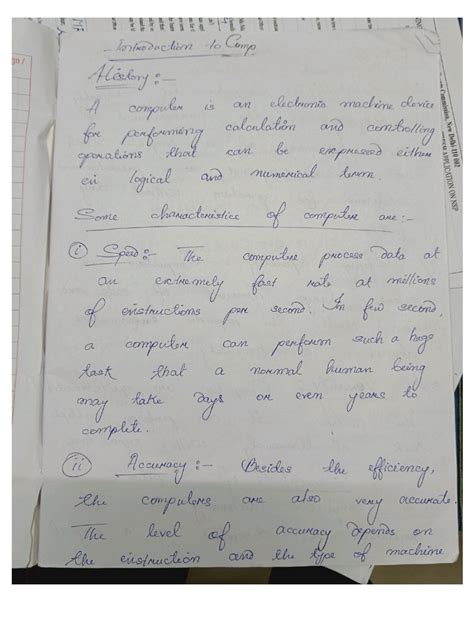 Introduction to Comp
History :-
A computer is an electronic machine device
for performing calculation and controlling
operations that can be expressed either
in logical and numerical term.
Some characteristics of computer are :-
(i) Speed :- The computer process data at
an extremely fast rate at millions
of instructions per second. In few second,
a computer can perform such a huge
task that a normal human being
may take days or even years to
complete.
(ii) Accuracy :- Besides the efficiency,
the computers are also very accurate.
The level of accuracy depends on
the instruction and the type of machine
Commission, New Delhi 110 002
APPLICATION ON NSP